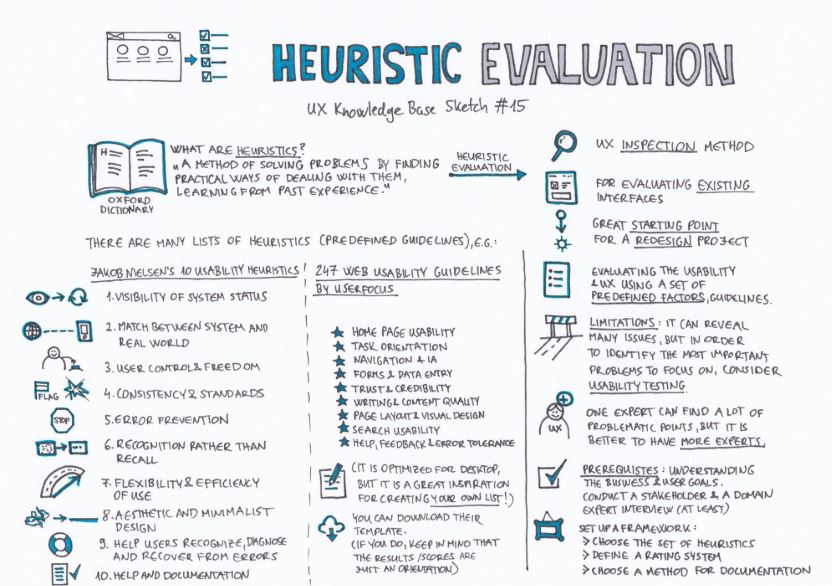 HEURISTIC EVALUATION
UX Knowledge Base Sketch #15
H
OXFORD
DICTIONARY
WHAT ARE HEURISTICS?
"A METHOD OF SOLVING PROBLEMS BY FINDING
PRACTICAL WAYS OF DEALING WITH THEM,
LEARNING FROM PAST EXPERIENCE."
HEURISTIC
EVALUATION
THERE ARE MANY LISTS OF HEURISTICS (PREDEFINED GUIDELINES), E.G.:
JAKOB NIELSEN'S 10 USABILITY HEURISTICS
1. VISIBILITY OF SYSTEM STATUS
2. MATCH BETWEEN SYSTEM AND
REAL WORLD
3. USER CONTROL & FREEDOM
FLAG
4. CONSISTENCY & STANDARDS
STOP
5. ERROR PREVENTION
6. RECOGNITION RATHER THAN
RECALL
7. FLEXIBILITY & EFFICIENCY
OF USE
8. AESTHETIC AND MINIMALIST
DESIGN
9. HELP USERS RECOGNIZE, DIAGNOSE
AND RECOVER FROM ERRORS
10. HELP AND DOCUMENTATION
247 WEB USABILITY GUIDELINES
BY USERFOCUS
HOME PAGE USABILITY
TASK ORIENTATION
NAVIGATION & IA
FORMS & DATA ENTRY
TRUST & CREDIBILITY
WRITING & CONTENT QUALITY
PAGE LAYOUT & VISUAL DESIGN
SEARCH USABILITY
HELP, FEEDBACK & ERROR TOLERANCE
(IT IS OPTIMIZED FOR DESKTOP,
BUT IT IS A GREAT INSPIRATION
FOR CREATING YOUR OWN LIST!)
YOU CAN DOWNLOAD THEIR
TEMPLATE.
(IF YOU DO, KEEP IN MIND THAT
THE RESULTS/SCORES ARE
JUST AN ORIENTATION)
UX INSPECTION METHOD
FOR EVALUATING EXISTING
INTERFACES
GREAT STARTING POINT
FOR A REDESIGN PROJECT
EVALUATING THE USABILITY
& UX USING A SET OF
PREDEFINED FACTORS, GUIDELINES.
LIMITATIONS: IT CAN REVEAL
MANY ISSUES, BUT IN ORDER
TO IDENTIFY THE MOST IMPORTANT
PROBLEMS TO FOCUS ON, CONSIDER
USABILITY TESTING.
UX
ONE EXPERT CAN FIND A LOT OF
PROBLEMATIC POINTS, BUT IT IS
BETTER TO HAVE MORE EXPERTS.
PREREQUISTES: UNDERSTANDING
THE BUSINESS & USER GOALS.
CONDUCT A STAKEHOLDER & A DOMAIN
EXPERT INTERVIEW (AT LEAST)
SET UP A FRAMEWORK:
> CHOOSE THE SET OF HEURISTICS
> DEFINE A RATING SYSTEM
> CHOOSE A METHOD FOR DOCUMENTATION